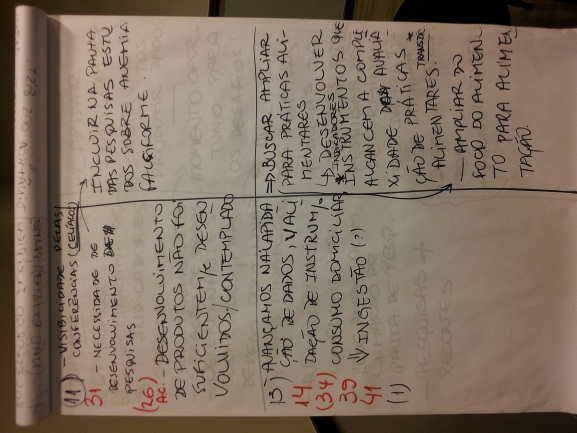 (11) - VISIBILIDADE PELAS
CONFERÊNCIAS (CELÍACO)
31 - NECESSIDADE DE
DESENVOLVIMENTO DE
PESQUISAS
(26)
AC. - DESENVOLVIMENTO
DE PRODUTOS NÃO FOI
SUFICIENTEM/E DESEN
VOLVIDOS/CONTEMPLADO
INCLUIR NA PAUTA
DAS PESQUISAS ESTU
DOS SOBRE ANEMIA
FALSIFORME.
13) AVANÇAMOS NA LAPIDA
ÇÃO DE DADOS, VALI
14 DAÇÃO DE INSTRUM/.
(34) CONSUMO DOMICILIAR
39 ↓ INGESTÃO (?)
41
(1)
⇒ BUSCAR AMPLIAR
PARA PRÁTICAS ALI-
MENTARES
↳ DESENVOLVER
* INDICADORES
INSTRUMENTOS QUE
ALCANCEM A COMPLE
XIDADE DA AVALIA
ÇÃO DE PRÁTICAS *
ALIMENTARES.
— AMPLIAR DO
FOCO DO ALIMEN
TO PARA ALIMEN
TAÇÃO